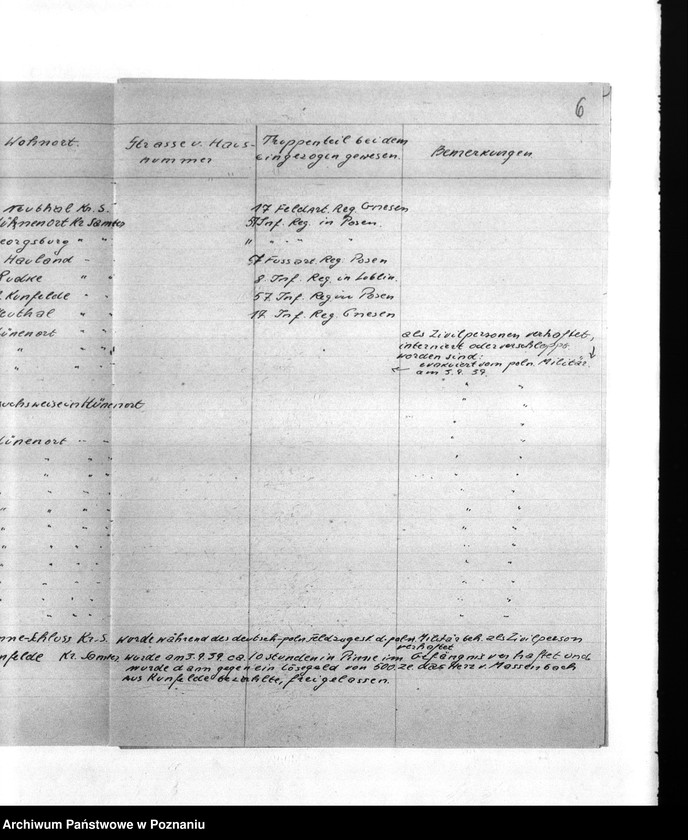 6
Wohnort. Strasse u. Haus- Truppenteil bei dem Bemerkungen
nummer eingezogen gewesen.
Neuthal Kr. S. 17 Feldart. Reg. Gnesen
Hühnenort Kr. Samter 57 Inf. Reg. in Posen.
eorgsburg " " " " - " "
Hauland - - 57 Fussart. Reg. Posen
Rudke " " 8. Inf. Reg. in Loblin.
Kunfelde " - 57. Inf. Reg in Posen
euthal " " 17. Inf. Reg. Gnesen
ünenort " - als Zivilpersonen verhaftet,
" " " interniert oder verschleppt
" " " worden sind:
evakuiert vom poln. Militär.
am 3.9.39.
" "
uchsweise in Hünenort " "
" "
ünenort " - " "
" " " " "
" " " " "
" " " " "
" " " " "
" " " " "
" " " " "
" " " " "
" " " " "
" " " " "
nne-Schloss Kr. S. wurde während des deutsch-poln. Feldzuges d. poln. Militärbeh. als Zivilperson
verhaftet
nfelde Kr. Samter, wurde am 3.9.39. ca. 10 Stunden in Pinne im Gefängnis verhaftet und
wurde dann gegen ein Lösegeld von 500 Zl. das Herr v. Massenbach
aus Kunfelde bezahlte, freigelassen.
Archiwum Państwowe w Poznaniu